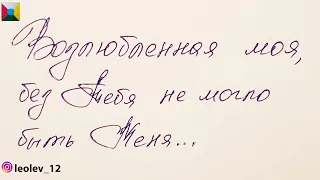 Возлюбленная моя,
без Тебя не могло
быть Меня...
leolev_12